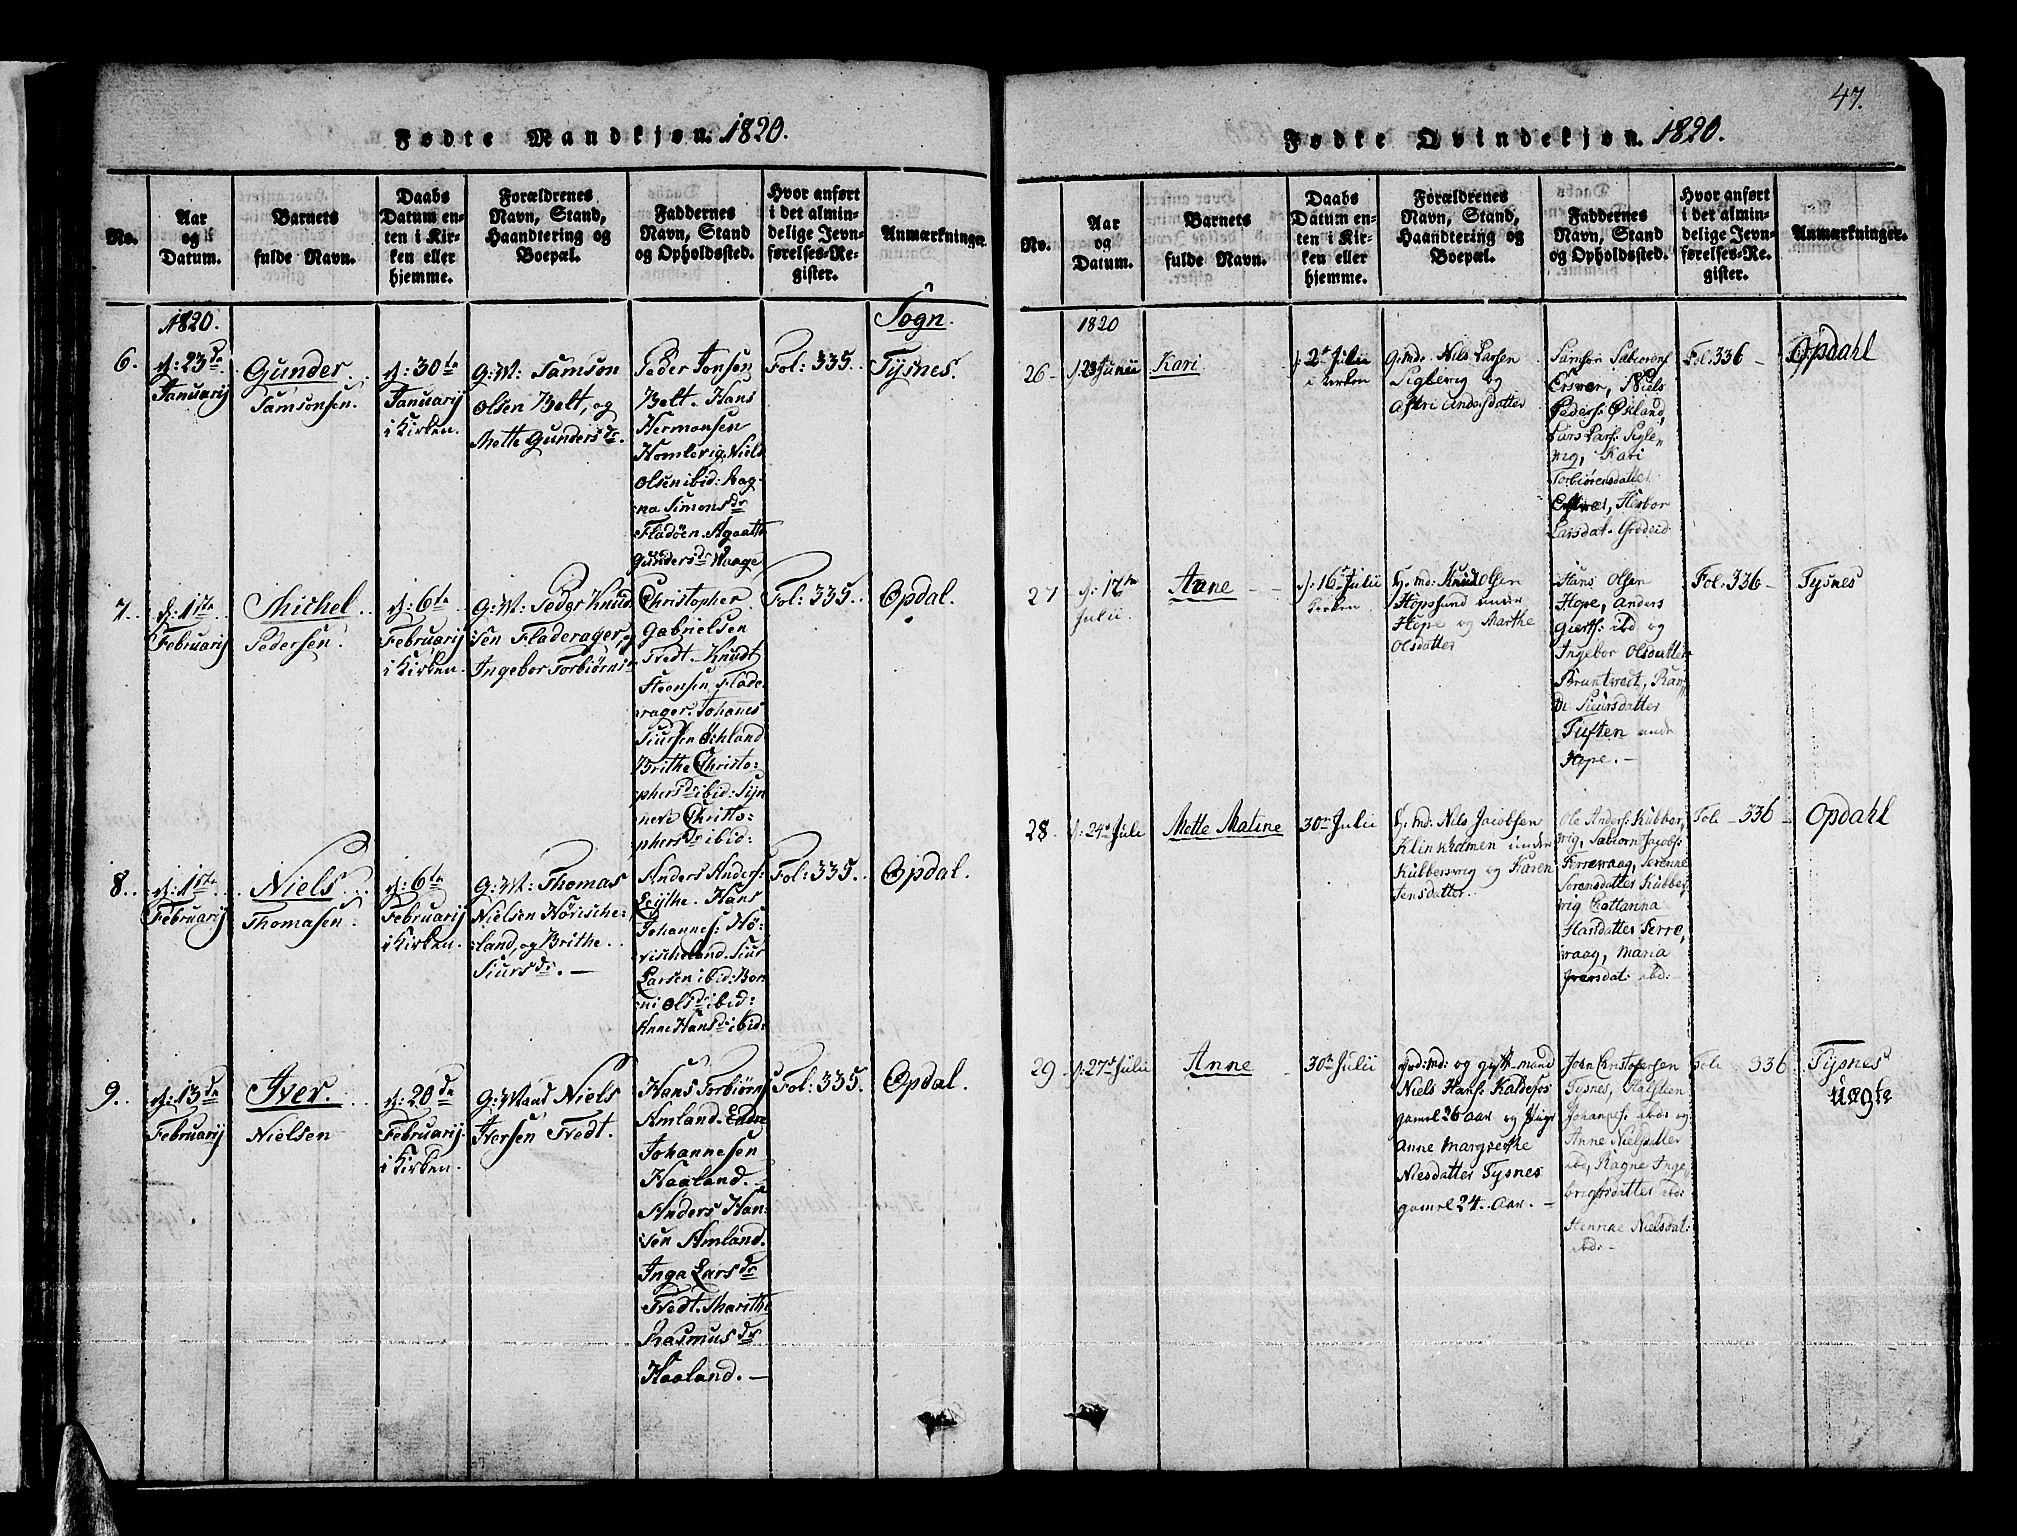 47.
Fødte Mandkjøn. 1820.
No.
Aar
og
Datum.
Barnets
fulde Navn.
Daabs
Datum en-
ten i Kir-
ken eller
hjemme.
Forældrenes
Navn, Stand,
Haandtering og
Boepæl.
Faddernes
Navn, Stand
og Opholdssted.
Hvor anført
i det almin-
delige Jevn-
førelses-Re-
gister.
Anmærkninger.
1820.
Sogn.
6.
d: 23de
Januarij
Gunder
Samsonsen.
d: 30te
Januarij
i Kirken.
G: M: Samson
Olsen Belt, og
Mette Gundersdr.
Peder Jonsen
Belt. Hans
Hermonsen
Homlevig, Niels
Olsen ibid: Rag-
na Simonsdr
Fladøen. Agaathe
Gundersdr Waage
Fol: 335.
Tysnes.
7.
d: 1ste
Februarij
Michel
Pedersen.
d: 6te
Februarij
i Kirken.
G: M: Peder Knud
sen Fladerager, og
Ingebor Torbiørnsdr
Christopher
Gabrielsen
Tvedt. Knudt
Steensen Flade-
rager. Johanes
Siursen Økland
Brithe Christo-
phersdr ibid: Syn
neve Christo-
phersdr ibid:
Fol: 335.
Opdal.
8.
d: 1ste
Februarij
Niels
Thomasen.
d: 6te
Februarij
i Kirken.
G: M: Thomas
Nielsen Hövische-
land, og Brithe
Siursdr. —
Anders Anders:
Lythe. Hans
Johannes: Hö-
vischeland. Siur
Larsen ibid: Bor-
ni Olsdr ibid:
Anne Hansdr ibid:
Fol: 335.
Opdal.
9.
d: 13de
Februarij
Iver.
Nielsen
d: 20de
Februarij.
i Kirken.
G: Mand Niels
Iversen Tvedt.
Hans Torbiörns
Amland. Endre
Johannesen
Haaland. —
Anders Han-
sen Amland.
Inga Larsdr
Tvedt. Marithe
Rasmusdr
Haaland. —
Fol: 335.
Opdal.
Fødte Qvindekjøn. 1820.
No.
Aar
og
Datum.
Barnets
fulde Navn.
Daabs
Datum en-
ten i Kir-
ken eller
hjemme.
Forældrenes
Navn, Stand,
Haandtering og
Boepæl.
Faddernes
Navn, Stand
og Opholdssted.
Hvor anført
i det almin-
delige Jevn-
førelses-Re-
gister.
Anmærkninger.
1820
26
Junii
Kari
2d Julii
i Kirken
G: md: Nils Larsen
Siglevig og
Astri Andersdatter
Samson
Niels
Peders: Økland,
Lars Lars: Sigle-
vig, Kari
Torbiörensdatter
Herbor
Larsdat: Grödeid
Fol. 336 -
Opdahl
27
d: 12te
Julii.
Anne
d: 16 Julii
Kirken
G. md: Knud Olsen
Hopssund under
Hope og Marthe
Olsdatter
Hans Olsen
Hope, Anders
Gierts: ibd og
Ingebor Olsdatter
Bruntvedt, Ran-
di Siursdatter
Tuften unde
Hope. -
Fol: 336 -
Tysnes
28.
d: 24d Juli
Mette Matine
30te Julii
G. md: Nils Jacobsen
Klinkholmen under
Kübbervig og Karen
Jensdatter.
Ole Anders: Kübber,
vig, Jacobs:
Færrevaag, Serenne
Sorensdatter Kübber,
vig Chattarina
Hansdatter Færre,
vaag, Maria
Iversdat: ibd:
Fol - 336 -
Opdahl
29
d: 27d Julii
Anne
30te Julii
og gift mand
Niels Hans: Kaldefos
gaml 26 aar og Pige
Anne Margrethe
Nielsdatter Tysnes
gaml 24. Aar. -
John Christophersen
Tysnes,
Johannes: ibd: og
Anne Nielsdatter
ibd, Ragne Inge,
brigtsdatter ibd:
Henrike Nielsdat:
ibd: -
Fol: 336
Tysnes
uægte